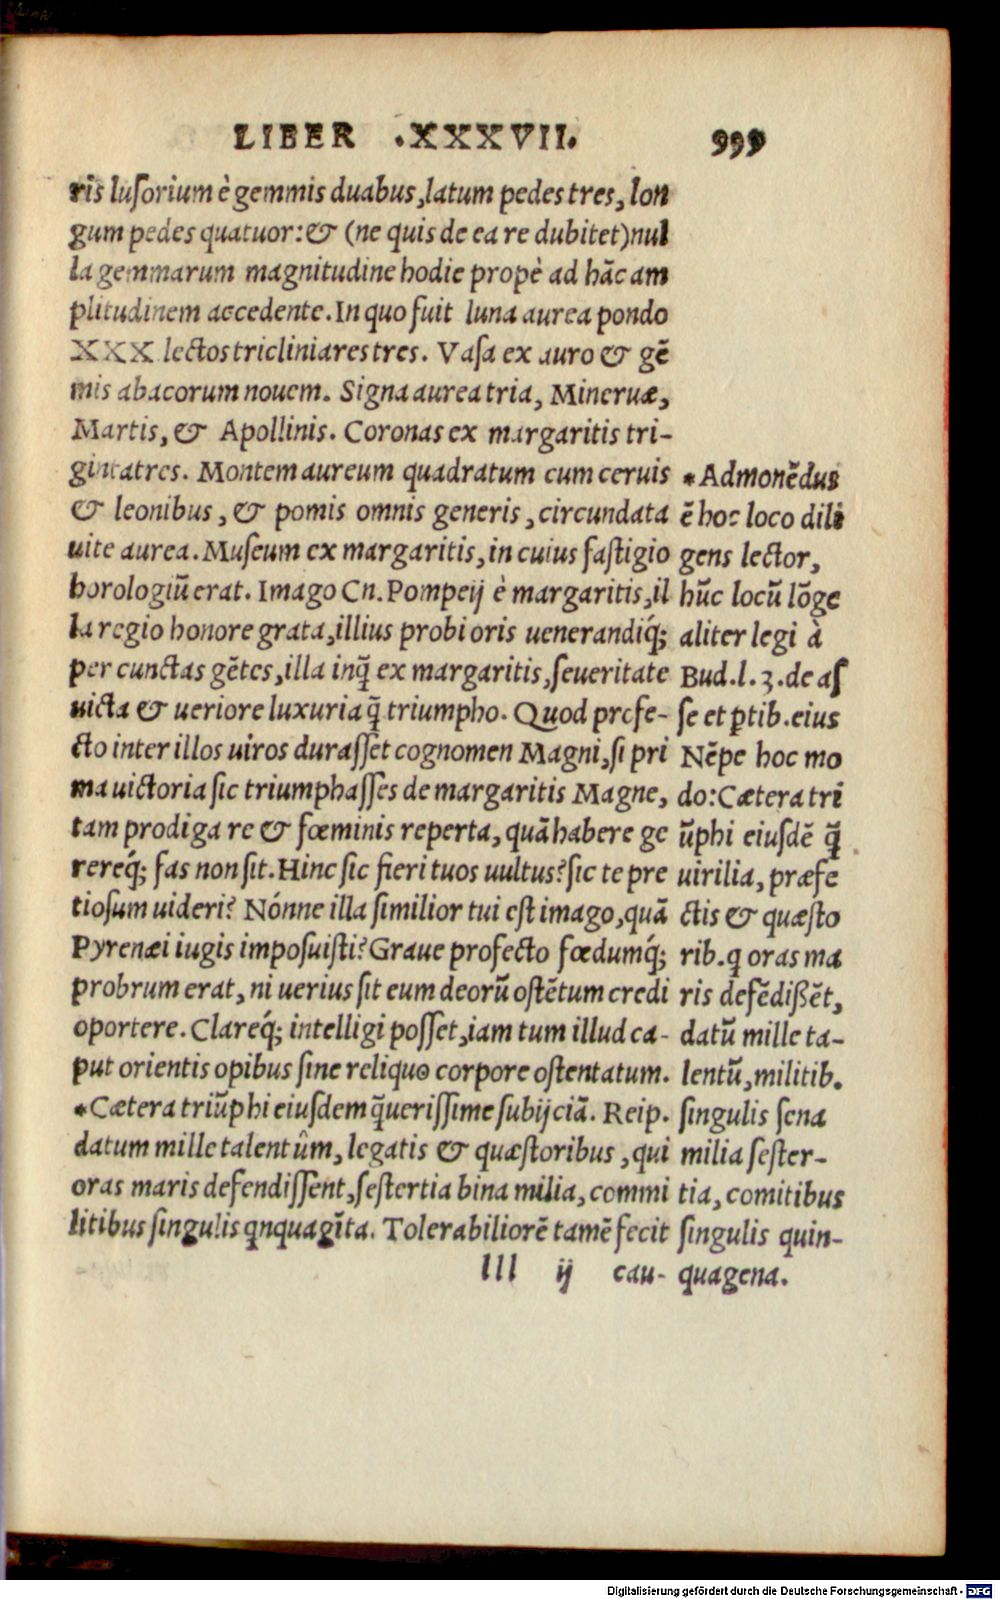 LIBER .XXXVII. 999
ris luſorium è gemmis duabus,latum pedes tres, lon
gum pedes quatuor:& (ne quis de ea re dubitet)nul
la gemmarum magnitudine hodie propè ad hāc am
plitudinem accedente.In quo fuit luna aurea pondo
XXX lectos tricliniares tres. Vaſa ex auro & gē
mis abacorum nouem. Signa aurea tria, Mineruæ,
Martis, & Apollinis. Coronas ex margaritis tri-
ginta tres. Montem aureum quadratum cum ceruis
& leonibus, & pomis omnis generis, circundata
uite aurea. Muſeum ex margaritis, in cuius faſtigio
horologiū erat. Imago Cn.Pompeij è margaritis, il
la regio honore grata, illius probi oris uenerandiq́;
per cunctas gētes, illa inq̄ ex margaritis, ſeueritate
uicta & ueriore luxuria q̄ triumpho. Quod profe-
cto inter illos uiros duraſſet cognomen Magni, ſi pri
ma uictoria ſic triumphaſſes de margaritis Magne,
tam prodiga re & fœminis reperta, quā habere ge
rereq́; fas non ſit. Hinc ſic fieri tuos uultus? ſic te pre
tioſum uideri? Nónne illa ſimilior tui eſt imago, quā
Pyrenæi iugis impoſuiſti? Graue profecto fœdumq́;
probrum erat, ni uerius ſit eum deorū oſtētum credi
oportere. Clareq́; intelligi poſſet, iam tum illud ca-
put orientis opibus ſine reliquo corpore oſtentatum.
*Cætera triūphi eiuſdem q̄ ueriſſime ſubijciā. Reip.
datum mille talentûm, legatis & quæſtoribus, qui
oras maris defendiſſent, ſeſtertia bina milia, commi
litibus ſingulis qnquagīta. Tolerabiliorē tamē fecit
lll ij cau-
*Admonēdus
ē hoc loco dili
gens lector,
hūc locū lōge
aliter legi à
Bud.l.3.de aſ
ſe et ꝑtib.eius
Nēpe hoc mo
do:Cætera tri
ūphi eiuſdē q̄
uirilia, præfe
ctis & quæſto
rib.q oras ma
ris defēdißēt,
datū mille ta-
lentū, militib.
ſingulis ſena
milia ſeſter-
tia, comitibus
ſingulis quin-
quagena.
Digitalisierung gefördert durch die Deutsche Forschungsgemeinschaft - DFG